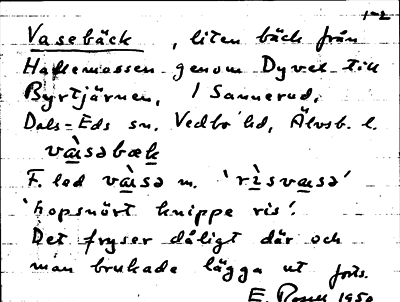 1-2
Vasebäck , liten bäck från
Haftemossen genom Dyvet till
Byrtjärnen, / Sannerud,
Dals-Eds sn. Vedbo hd, Älvsb. l.
và̀isəbæk
F. led và̀isə m. 'rìsvaisə'
'hopsnört knippe ris'.
Det fryser dåligt där och
man brukade lägga ut forts.
E. 1950